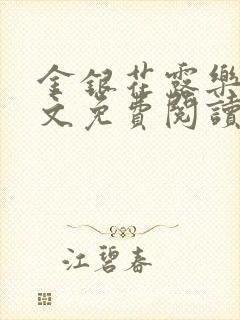 金銀花露樂
文免費閱讀
江碧春